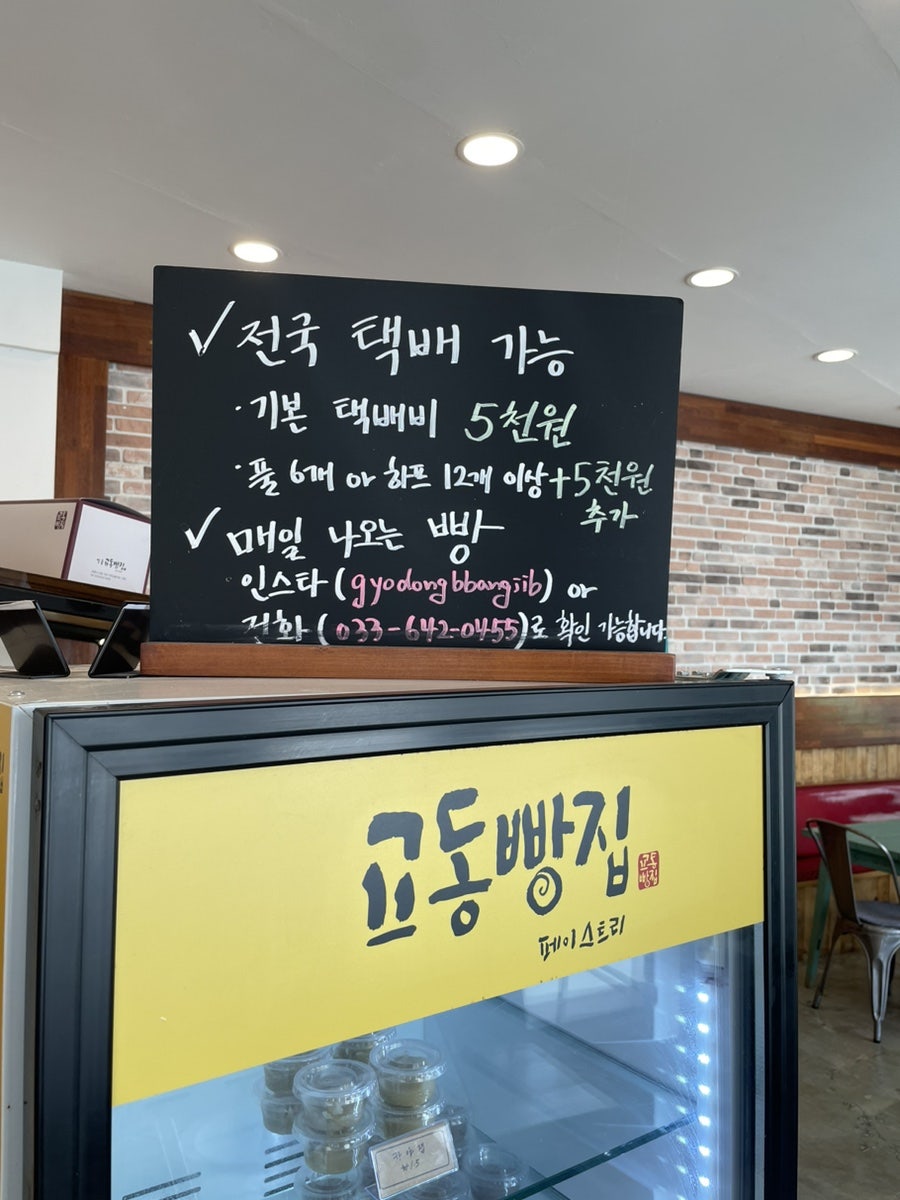 ✓전국 택배 가능
·기본 택배비 5천원
·풀 6개 or 하프 12개 이상+5천원
추가
✓매일 나오는 빵
인스타(gyodongbbangjib) or
전화(033-642-0455)로 확인 가능합니다.
교동빵집
교동
빵집
페이스트리
교동빵집
카야잼